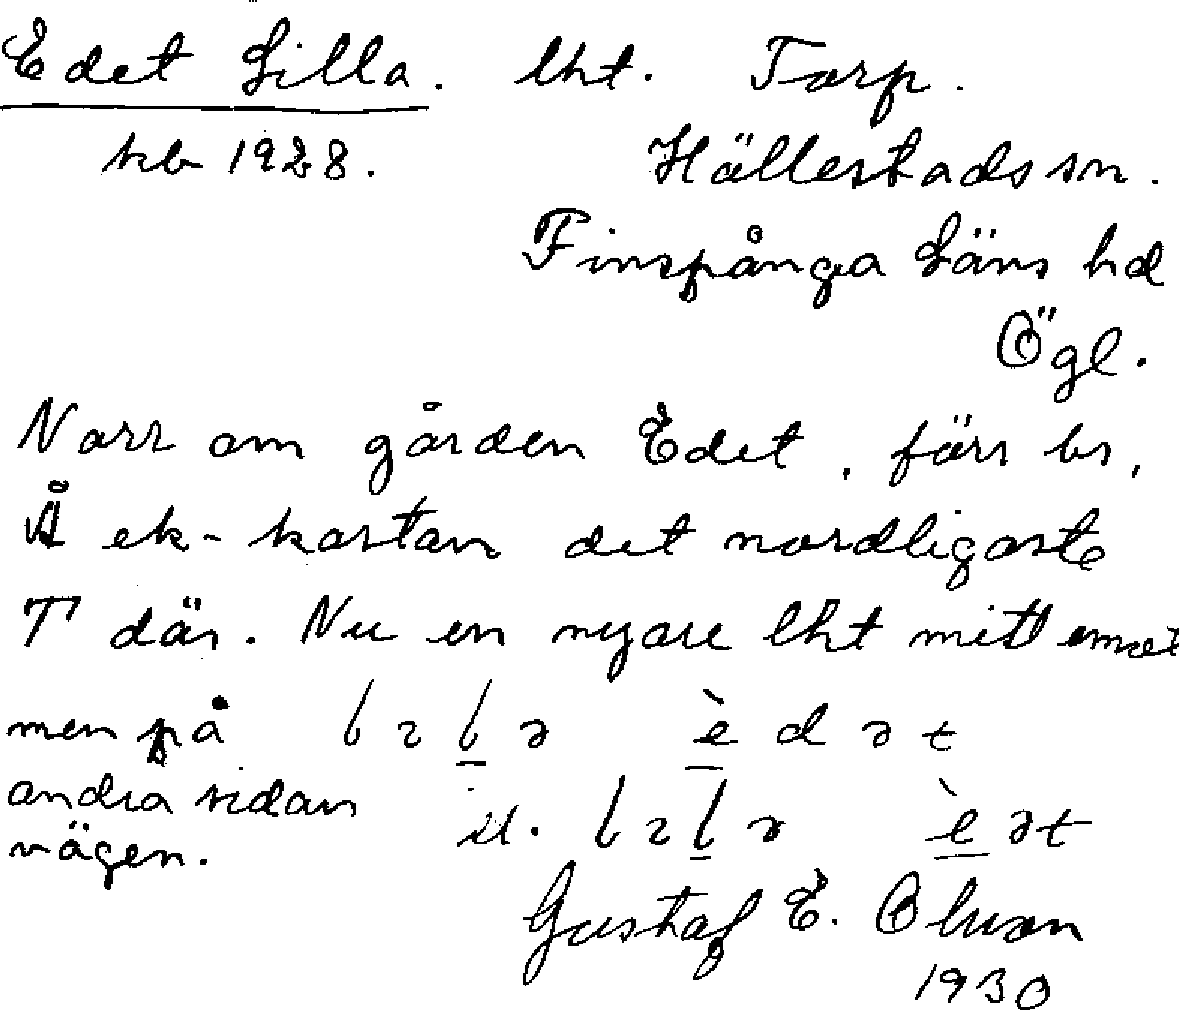 Edet Lilla. lht. Torp.
kb 1928. Hällestads sn.
Finspånga Läns hd
Ögl.
Norr om gården Edet, förr bs,
Å ek-kartan det nordligaste
T där. Nu en nyare lht mitt emot
men på lılə èdət
andra sidan
vägen. el. lılə èət
Gustaf E. Olsson
1930